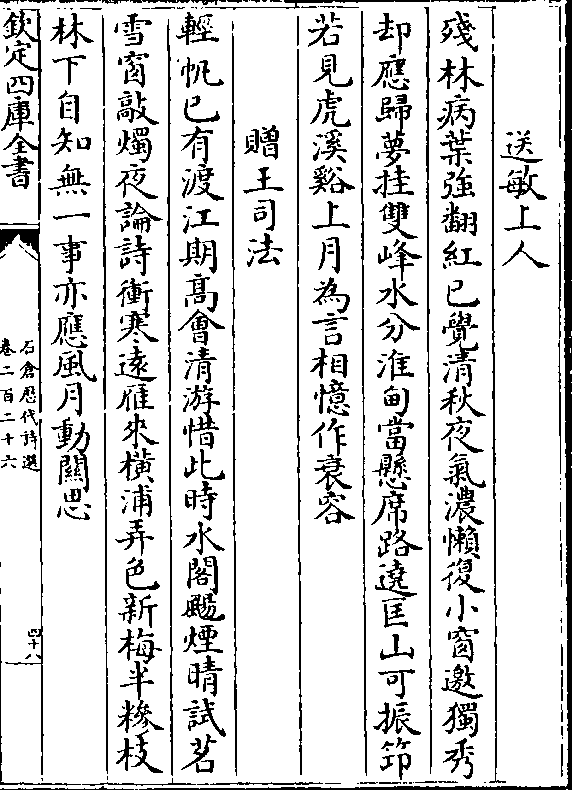 送敏上人
殘林病葉強翻紅已覺清秋夜氣濃懶復小窗邀獨秀
却應歸夢挂雙峰水分淮甸當懸席路遶匡山可振筇
若見虎溪谿上月為言相憶作衰容
贈王司法
輕帆已有渡江期髙㑹清游惜此時水閣颺煙晴試茗
雪窗敲燭夜論詩衝寒遠雁來橫浦弄色新梅半糝枝
林下自知無一事亦應風月動關思
欽定四庫全書
石倉歷代詩選
卷二百二十六
四十八